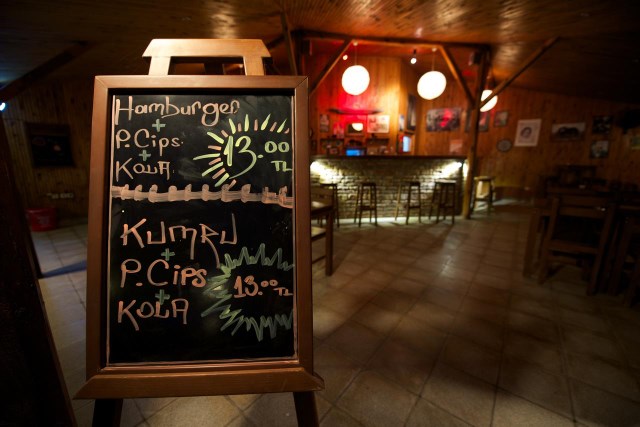 Hamburger
+
P.Cips
+
KOLA
13.00 TL
KUMRU
+
P.Cips
+
KOLA
13.00 TL